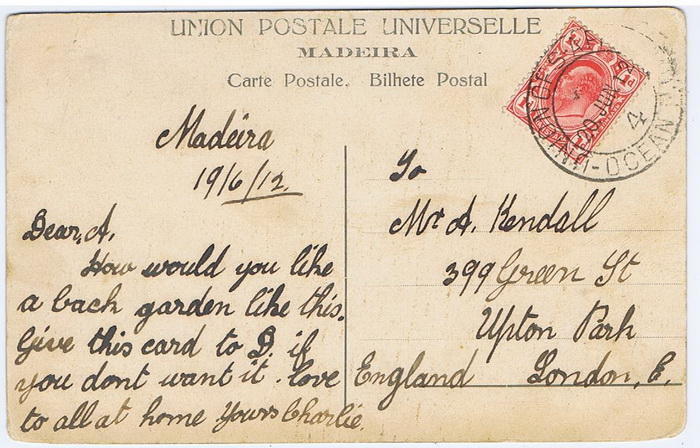 UNION POSTALE UNIVERSELLE
MADEIRA
Carte Postale. Bilhete Postal
Madeira
19/6/12.
Dear, A.
How would you like
a back garden like this.
Give this card to D. if
you dont want it. love
to all at home Yours Charlie.
To
Mr A. Kendall
399 Green St
Upton Park
England London, E.
UNION-OCEAN
JUN
4